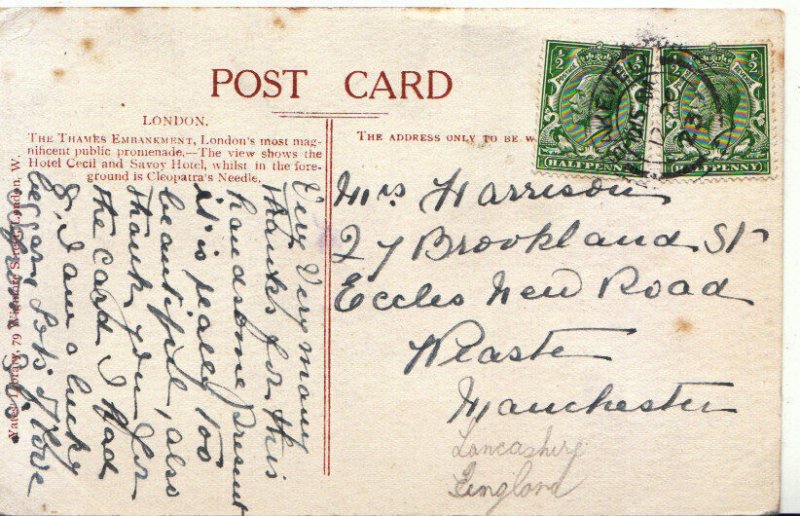 POST CARD
LONDON.
THE THAMES EMBANKMENT, London's most mag-
nificent public promenade.—The view shows the
Hotel Cecil and Savoy Hotel, whilst in the fore-
ground is Cleopatra's Needle.
THE ADDRESS ONLY TO BE W
Library, 79 London, W.
½ ½
HALFPENNY
PENNY
23
Very Very many
thanks for this
handsome present
it is really too
beautiful, also
thank you for
the card I had
I am a lucky
beggar, lots of love
Mrs Harrison
27 Brookland St
Eccles New Road
Weaste
Manchester
Lancashire
England